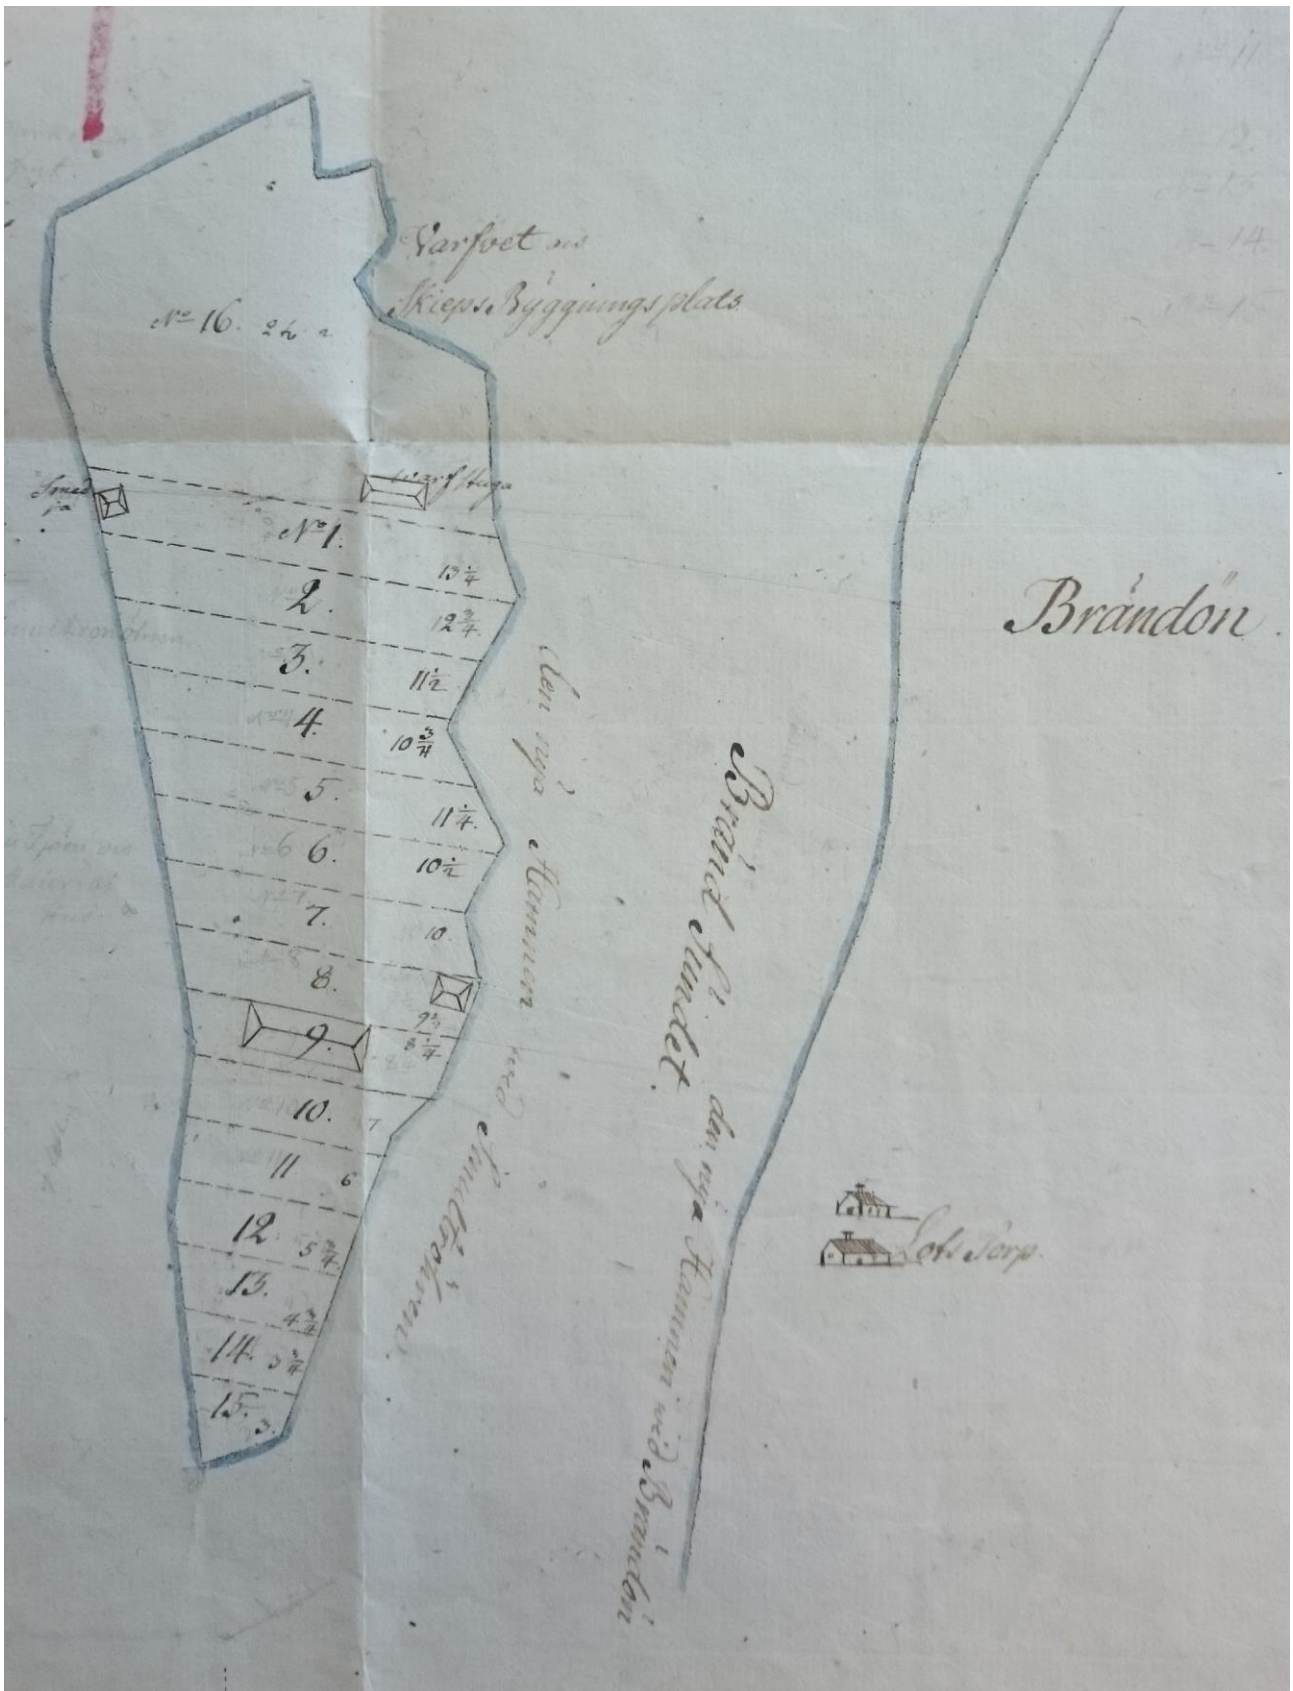 Varfvet
Skieps Byggnings plats
No 16.
Smed
ja
Warf Stuga
No 1.
13 1/4
2.
12 3/4
3.
11 1/2
4.
10 3/4
5.
11 1/4.
6.
10 1/2
7.
10.
8.
9.
8 1/4
10.
7
11
6
12
5 3/4
13.
4 3/4
14.
3 3/4
15.
3.
den nya Hamnen wed
Bränd Sundet.
den nya Hamnen wid Brändön
Brändön.
Lots Torp.